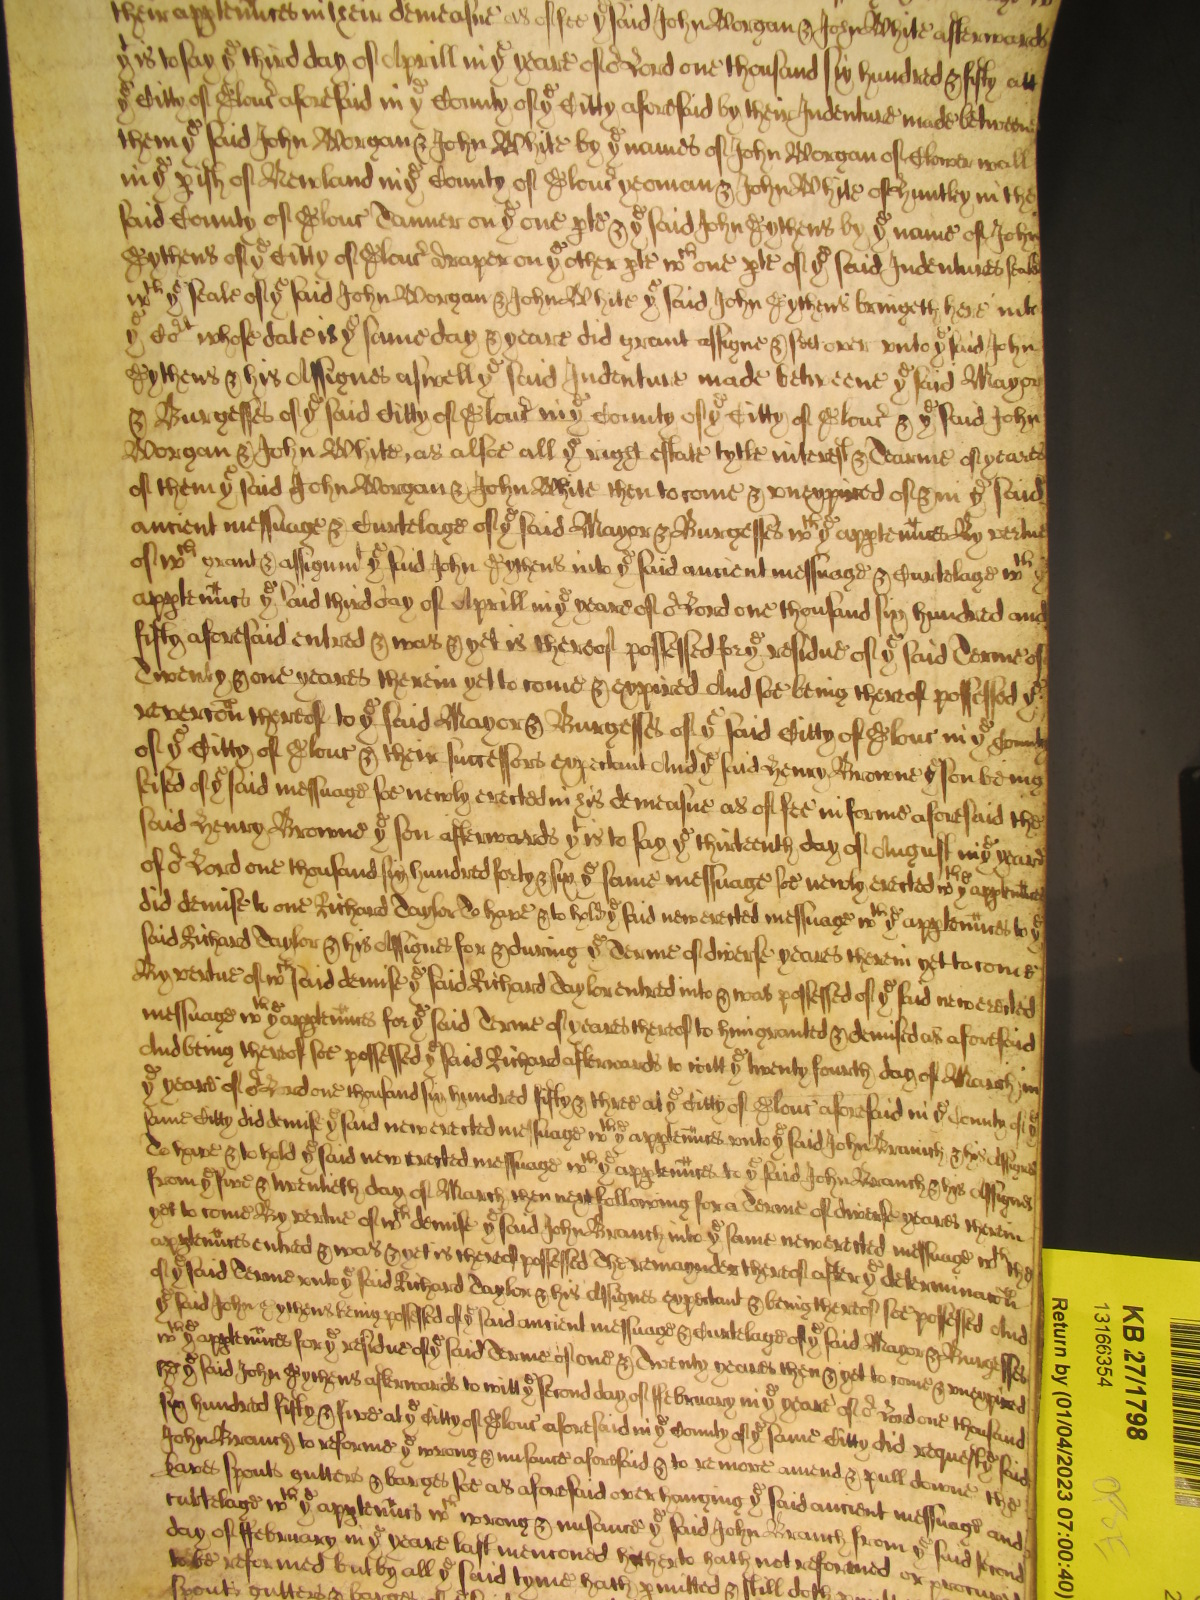 their apptenñces in their demeasne as of fee yͤ said John Worgan & John White afterwards
yͭ is to say yͤ third day of Aprill in yͤ yeare of oͬ Lord one thousand six hundred & fifty att
yͤ Citty of Glouc̃ aforesaid in yͤ County of yͤ Citty aforesaid by their Indenture made betweene
them yͤ said John Worgan & John White by yͤ names of John Worgan of Clower wall
in yͤ pish of Newland in yͤ County of Glouc̃ yeoman & John White of Huntley in the
said County of Glouc̃ Tanner on yͤ one pte & yͤ said John Pythens by yͤ name of John
Pythens of yͤ Citty of Glouc̃ draper on yͤ other pte wͭʰ one pte of yͤ said Indentures seald
wͭʰ yͤ seale of yͤ said John Worgan & John White yͤ said John Pythens bringeth here into
yͤ Coͬt whose date is yͤ same day & yeare did grant assigne & sett over unto yͤ said John
Pythens & his Assignes aswell yͤ said Indenture made betweene yͤ said Mayor
& Burgesses of yͤ said Citty of Glouc̃ in yͤ County of yͤ Citty of Glouc̃ & yͤ said John
Worgan & John White, as alsoe all yͤ right estate tytle interest & Tearme of yeares
of them yͤ said John Worgan & John White then to come & unexpired of & in yͤ said
ancient messuage & Curtelage of yͤ said Mayor & Burgesses wͭʰ yͤ apptenñces By vertue
of wͨʰ grant & assignmͭ yͤ said John Pythens into yͤ said ancient messuage & Curtelage wͭʰ yͤ
apptenñces yͤ said third day of Aprill in yͤ yeare of oͬ Lord one thousand six hundred and
fifty aforesaid entred & was & yet is thereof possessed for yͤ residue of yͤ said Terme of
Twenty & one yeares therein yet to come & expired And soe being thereof possessed yͤ
reverc̃on thereof to yͤ said Mayor & Burgesses of yͤ said Citty of Glouc̃ in yͤ County
of yͤ Citty of Glouc̃ & their successors expectant And yͤ said Henry Browne yͤ son being
seised of yͤ said messuage soe newly erected in his demeasne as of fee in forme aforesaid the
said Henry Browne yͤ son afterwards yͭ is to say yͤ thirteenth day of August in yͤ yeare
of oͬ Lord one thousand six hundred forty & six yͤ same messuage soe newly erected wͭʰ yͤ apptenñces
did demise to one Richard Taylor To have & to hold yͤ said new erected messuage wͭʰ yͤ apptenñces to yͤ
said Richard Taylor & his Assignes for & during yͤ Terme of diverse yeares therein yet to come
By vertue of wͨʰ said demise yͤ said Richard Taylor entred into & was possessed of yͤ said new erected
messuage wͭʰ yͤ apptenñces for yͤ said Terme of yeares thereof to him granted & demised as aforesaid
And being thereof soe possessed yͤ said Richard afterwards to witt yͤ twenty fourth day of March in
yͤ yeare of oͬ Lord one thousand six hundred fifty & three at yͤ Citty of Glouc̃ aforesaid in yͤ County of yͤ
same Citty did demise yͤ said new erected messuage wͭʰ yͤ apptenñces unto yͤ said John Branch & his Assignes
To have & to hold yͤ said new erected messuage wͭʰ yͤ apptenñces to yͤ said John Branch & his Assignes
from yͤ five & twentieth day of March then next following for a Terme of diverse yeares therein
yet to come By vertue of wͨʰ demise yͤ said John Branch into yͤ same new erected messuage wͭʰ the
apptenñces entred & was & yet is thereof possessed The remaynder thereof after yͤ determinac̃on
of yͤ said Terme unto yͤ said Richard Taylor & his Assignes expectant & being thereof soe possessed And
yͤ said John Pythens being possessed of yͤ said ancient messuage & Curtelage of yͤ said Mayor & Burgesses
wͭʰ yͤ apptenñces for yͤ residue of yͤ said Terme of one & Twenty yeares then & yet to come & unexpired
yͤ said John Pythens afterwards to witt yͤ second day of ffebruary in yͤ yeare of oͬ Lord one thousand
six hundred fifty & five at yͤ Citty of Glouc̃ aforesaid in yͤ County of yͤ same Citty did request yͤ said
John Branch to reforme yͤ wrong & nusance aforesaid & to remove amend & pull downe the
eaves spouts gutters & barges soe as aforesaid over hanging yͤ said ancient messuage and
curtelage wͭʰ yͤ apptenñces wͨʰ wrong & nusance yͤ said John Branch from yͤ said second
day of ffebruary in yͤ yeare last menc̃oned hitherto hath not reformed or procured
to be reformed but by all yͤ said tyme hath pmitted & still doth
spouts gutters & barges
KB 27/1798
13166354
Return by (01/04/2023 07:00:40)